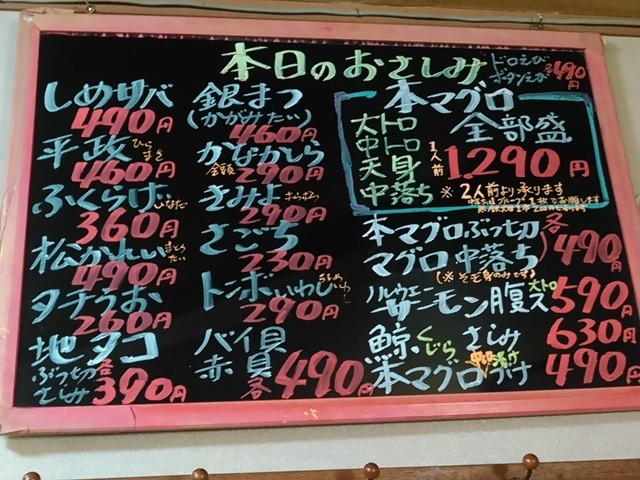 本日のおさしみ
ドロえび
ボタンえび 各490円
しめサバ
490円
平政 ひらまさ
460円
ふくらげ
360円
松かれい
490円
タチうお
260円
地タコ
ぶつ切
さしみ 各390円
銀まつ
(かがみたい)
460円
かなかしら
金頭 290円
きみよ
290円
さごち
230円
トンボいわし
290円
バイ貝
赤貝 各490円
本マグロ
全部盛
大トロ
中トロ
天身
中落ち
1人前 1,290円
※2人前より承ります
本マグロぶつ切
マグロ中落ち 各490円
ノルウェー
サーモン腹ス 590円
鯨 くじら さしみ 630円
本マグロづけ 490円